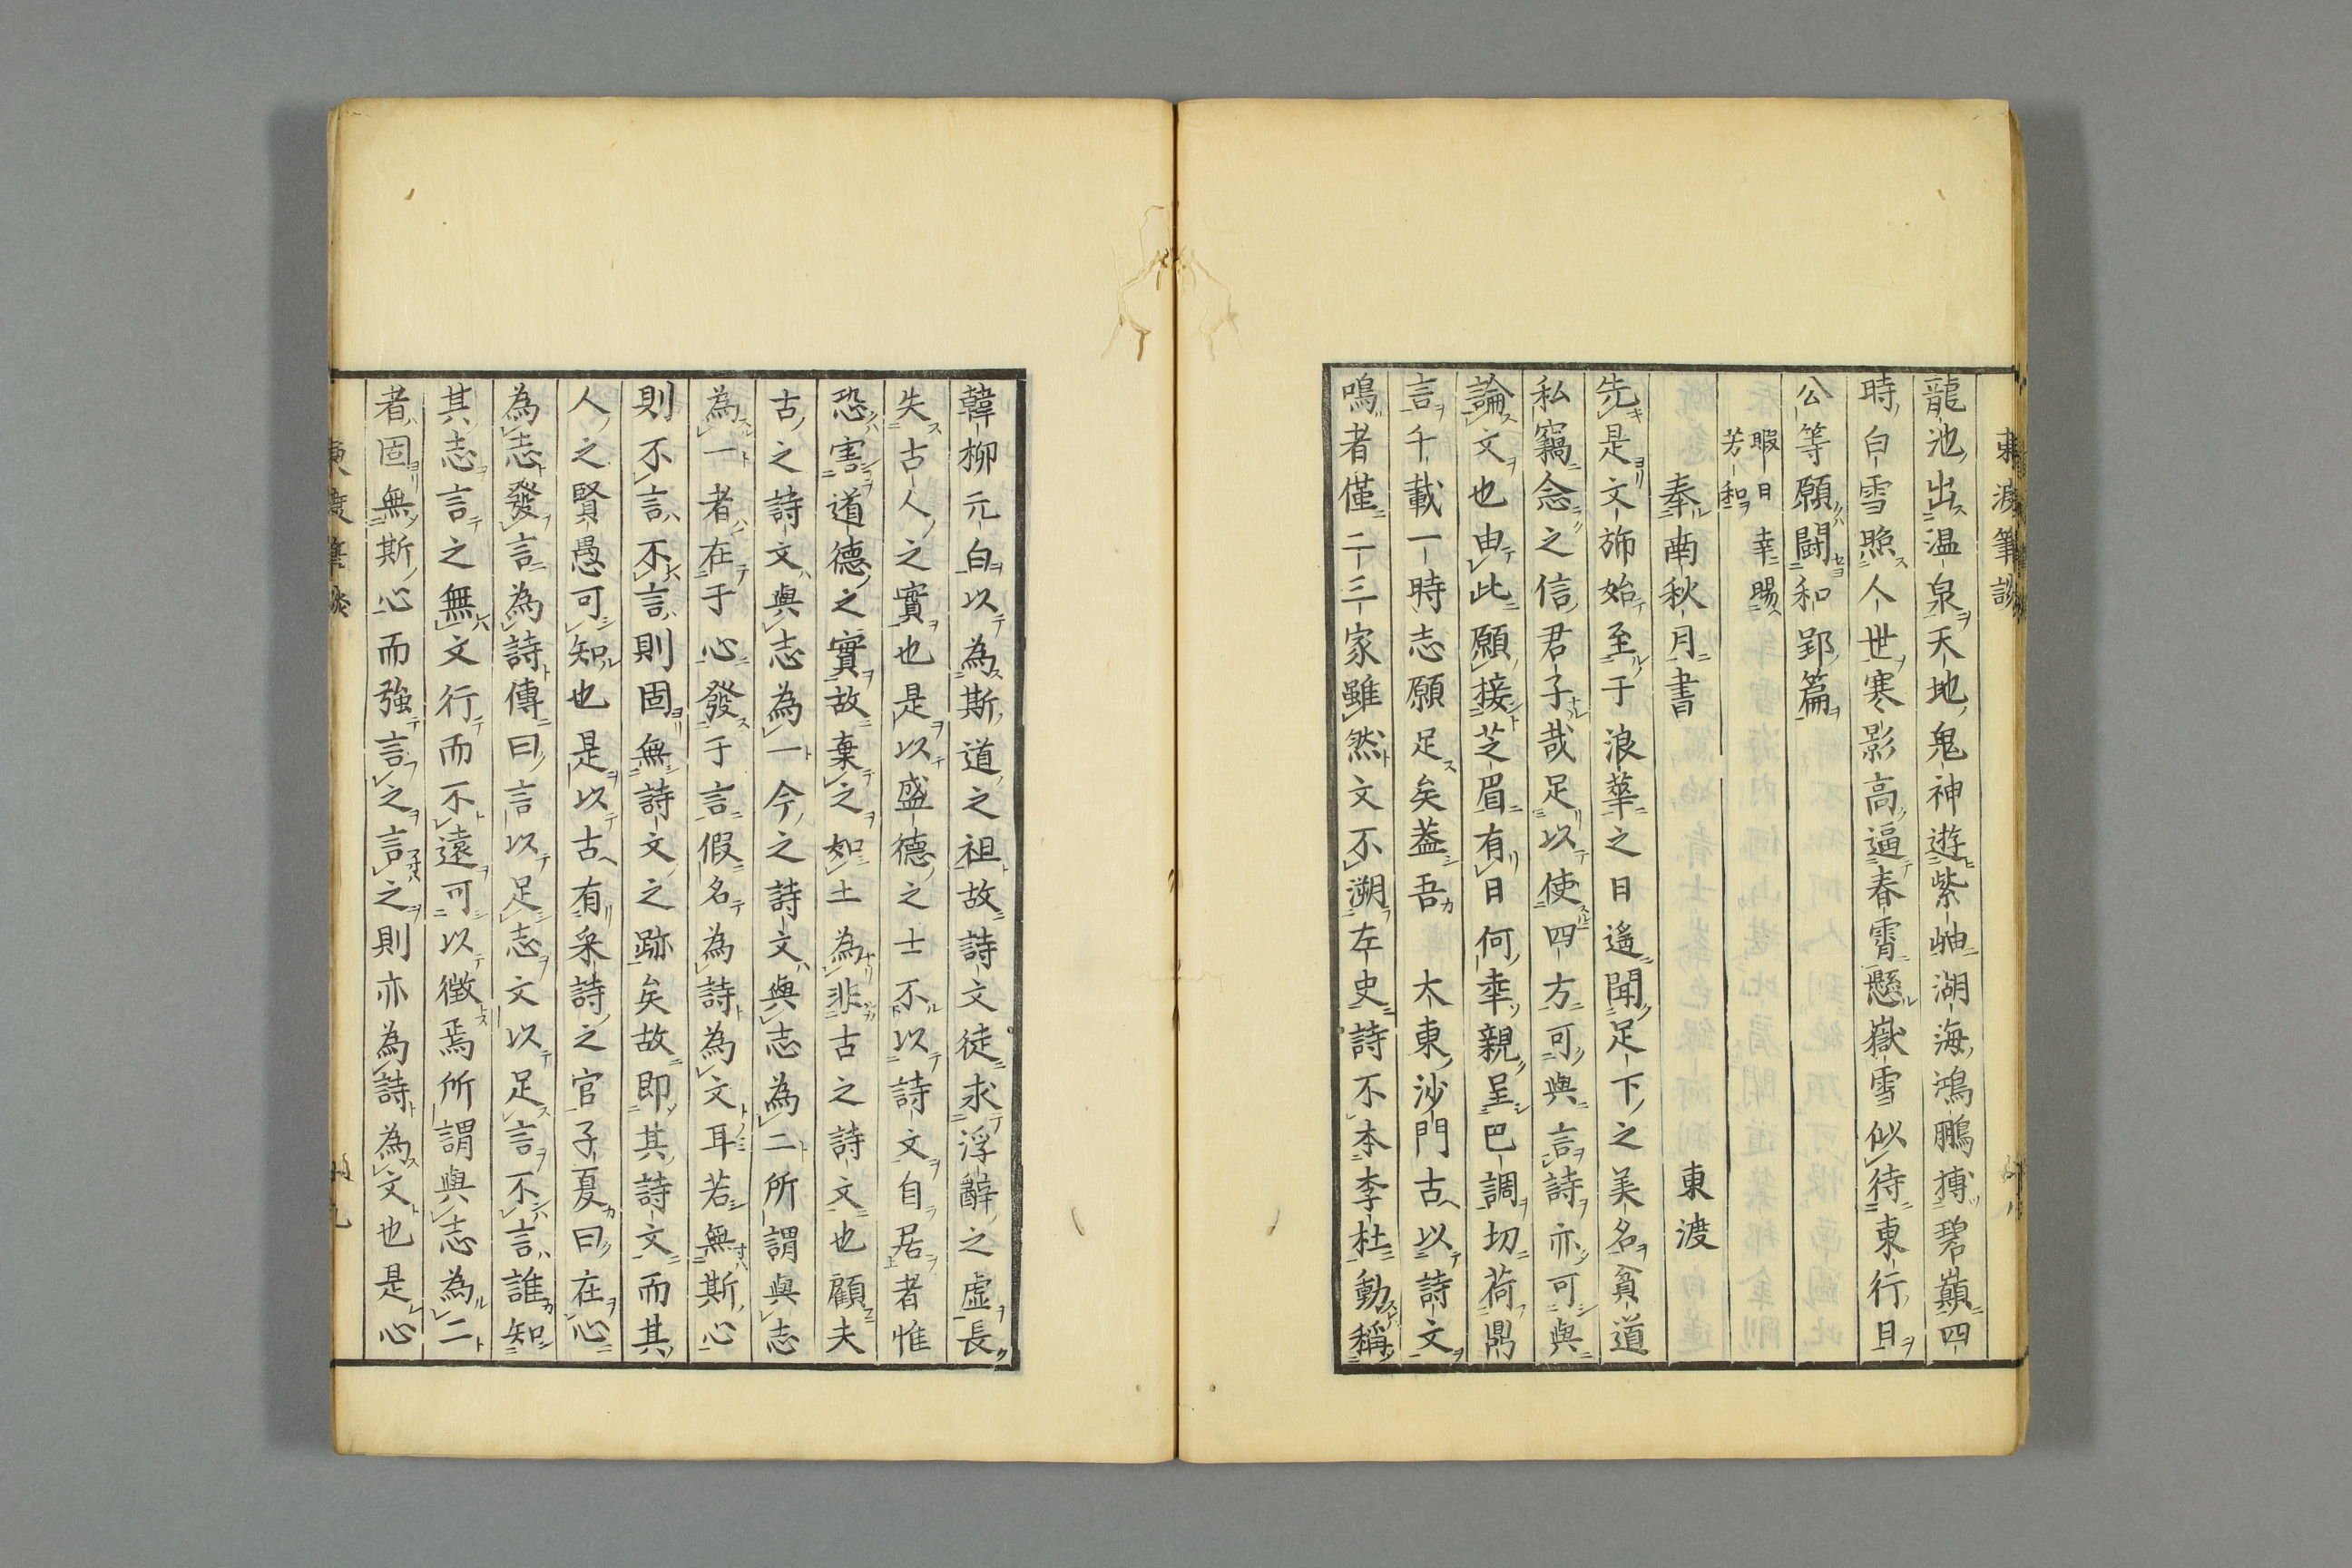 東渡筆談
龍池出温泉天地鬼神遊紫岫湖海鴻鵬搏碧巔四
時白雪照人世寒影高逼春霄懸嶽雪似待東行日
公等願闘和郢篇
暇日幸賜
芳和
奉南秋月書　東渡
先是文斾始至于浪華之日遙聞足下之美名貧道
私竊念之信君子哉足以使四方可與言詩亦可與
論文也由此願接芝眉有日何幸親呈巴調切荷鼎
言千載一時志願足矣蓋吾　大東沙門古以詩文
鳴者僅二三家雖然文不溯左史詩不本李杜動稱
韓柳元白以為斯道之祖故詩文徒求浮辭之虚長
失古人之實也是以盛德之士不以詩文自居者惟
恐害道德之實故棄之如土為非古之詩文也顧夫
古之詩文與志為一今之詩文與志為二所謂與志
為一者在于心發于言假名為詩為文耳若無斯心
則不言不言則固無詩文之跡矣故即其詩文而其
人之賢愚可知也是以古有采詩之官子夏曰在心
為志發言為詩傳曰言以足志文以足言不言誰知
其志言之無文行而不遠可以徵焉所謂與志為二
者固無斯心而強言之言之則亦為詩為文也是心
筆談